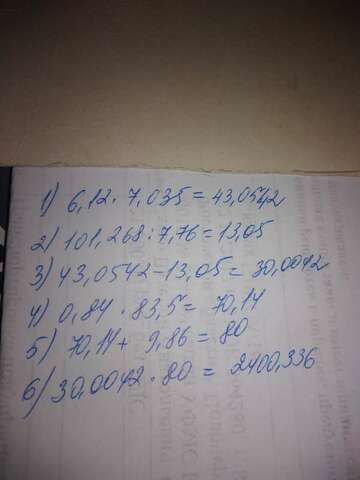 1) 6,12 · 7,035 = 43,0542
2) 101,268 : 7,76 = 13,05
3) 43,0542 - 13,05 = 30,0042
4) 0,84 · 83,5 = 70,14
5) 70,14 + 9,86 = 80
6) 30,0042 · 80 = 2400,336